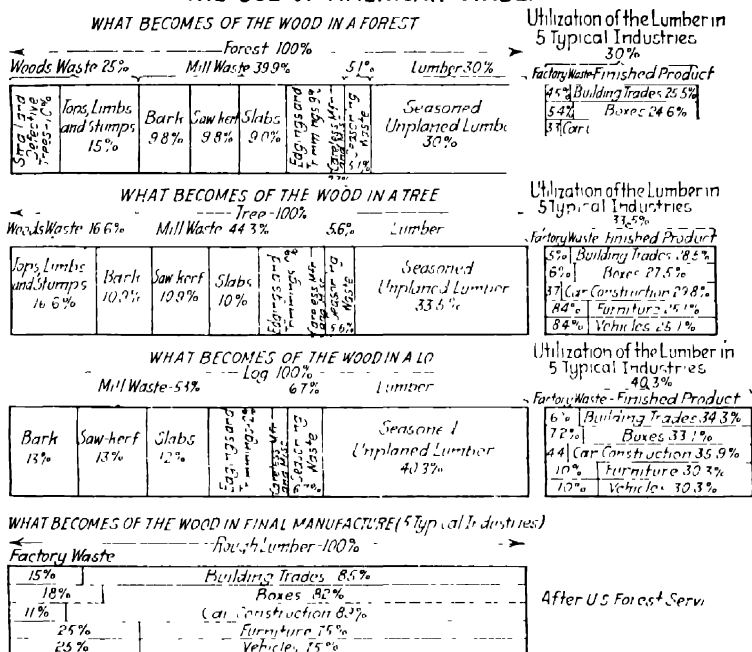 WHAT BECOMES OF THE WOOD IN A FOREST
Forest 100%
Woods Waste 25% Mill Waste 39.9% 5.1% Lumber 30%
Small and Defective Trees-10%
Tops, Limbs and Stumps 15%
Bark 9.8%
Saw kerf 9.8%
Slabs 9.0%
Edgings and Trimmings
Seasoned
Unplaned Lumbe
30%
Utilization of the Lumber in
5 Typical Industries
30%
Factory Waste-Finished Product
4.5% Building Trades 25.5%
5.4% Boxes 24.6%
3.3 Car C
WHAT BECOMES OF THE WOOD IN A TREE
Tree-100%
Woods Waste 16.6% Mill Waste 44.3% 5.6% Lumber
Tops, Limbs and Stumps 16.6%
Bark 10.9%
Saw kerf 10.9%
Slabs 10%
Edgings and Trimmings
5.6%
Seasoned
Unplaned Lumber
33.5%
Utilization of the Lumber in
5 Typical Industries
33.5%
Factory Waste Finished Product
5% Building Trades 28.5%
6% Boxes 27.5%
3.7 Car Construction 29.8%
8.4% Furniture 25.1%
8.4% Vehicles 25.1%
WHAT BECOMES OF THE WOOD IN A LO
Log 100%
Mill Waste-53% 6.7% Lumber
Bark 13%
Saw-kerf 13%
Slabs 12%
Edgings and Trimmings
Seasone
Unplaned Lumber
40.3%
Utilization of the Lumber in
5 Typical Industries
40.3%
Factory Waste-Finished Product
6% Building Trades 34.3%
7.2% Boxes 33.1%
4.4 Car Construction 35.9%
10% Furniture 30.3%
10% Vehicles 30.3%
WHAT BECOMES OF THE WOOD IN FINAL MANUFACTURE (5 Typical Industries)
Rough Lumber-100%
Factory Waste
15% Building Trades 85%
18% Boxes 82%
11% Car Construction 89%
25% Furniture 75%
25% Vehicles 75%
After U S Forest Servi